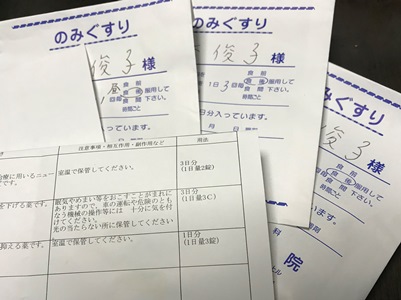 のみぐすり
俊子様
昼
食前
食後
食間
服用して
下さい。
入っています。
のみぐすり
俊子様
1日3回毎
食前
食後
食間
服用して
下さい。
時間ごと
日分入っています。
月 日
のみぐすり
俊子様
食前
食後
食間
服用して
下さい。
時間ごと
います。
科
院
注意事項・相互作用・副作用など
用法
治療に用いるニュー
です。
室温で保管してください。
3日分
(1日量3錠)
を下げる薬です。
眠気やめまい等をおこすことがまれに
ありますので、車の運転や危険のとも
なう機械の操作等には 十分に気を付
けてください。
光の当たらない所に保管してください
3日分
(1日量3C)
抑える薬です。
室温で保管してください。
1日分
(1日量2錠)